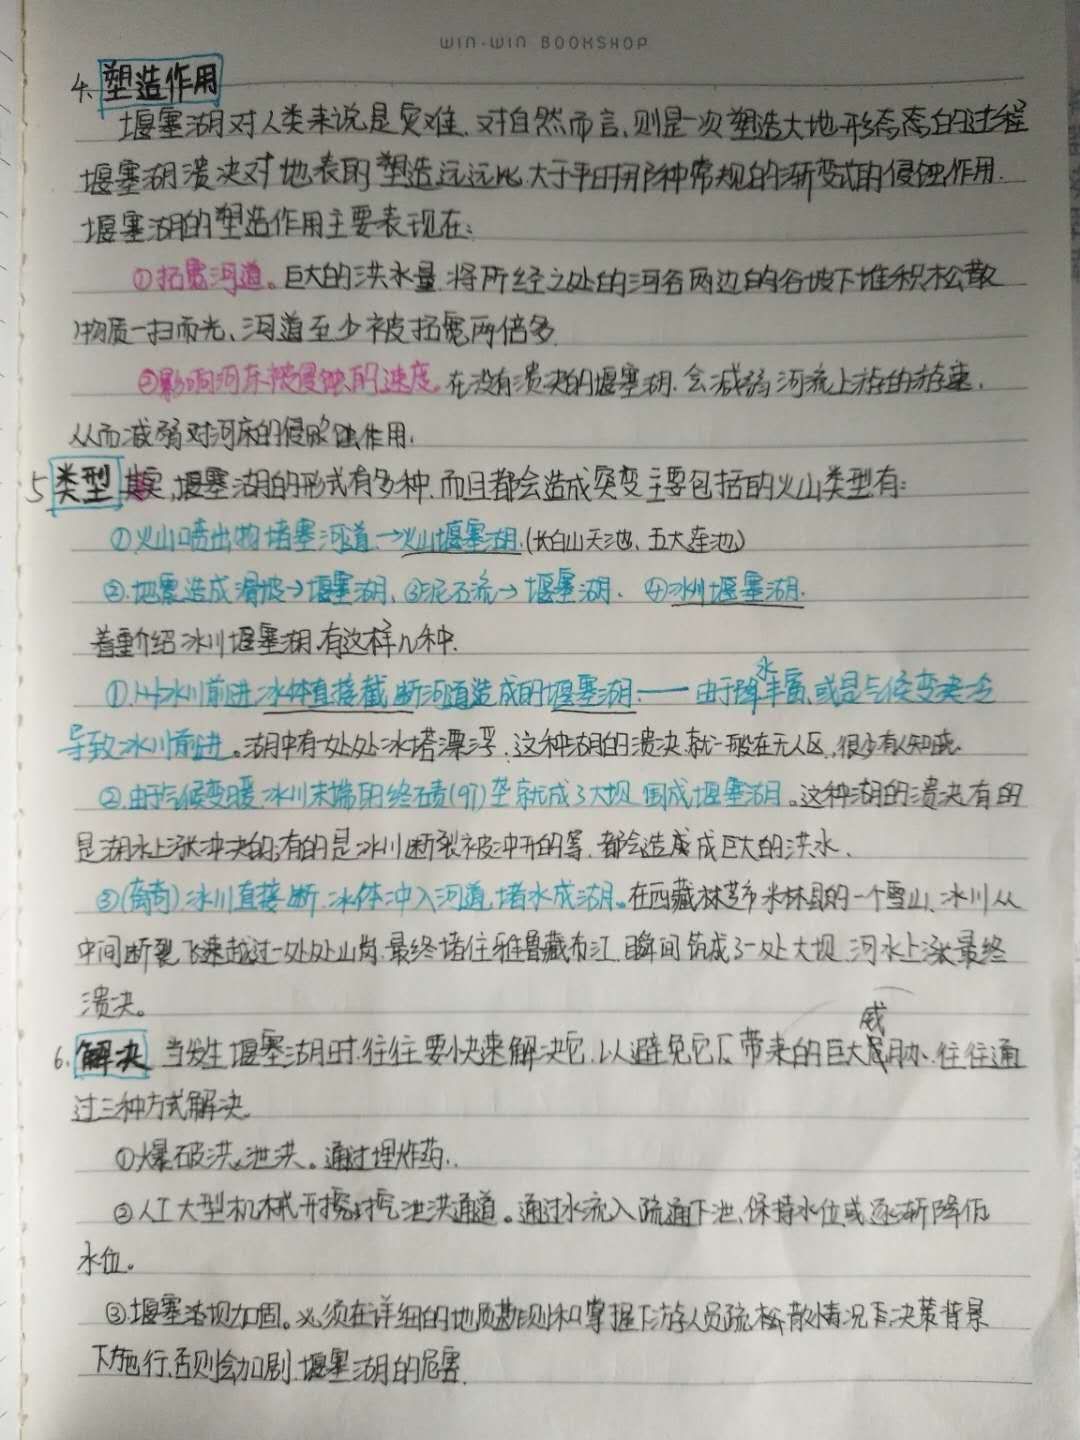 WIN-WIN BOOKSHOP
4、塑造作用
堰塞湖对人类来说是灾难,对自然而言,则是一次塑造大地形态的过程
堰塞湖溃决对地表的塑造远远比大于平时那种常规的渐变式的侵蚀作用.
堰塞湖的塑造作用主要表现在:
①拓宽河道。巨大的洪水量将所经之处的河谷两边的谷坡下堆积松散
物质一扫而光、河道至少被拓宽两倍多
②影响河床被侵蚀的速度.在没有溃决的堰塞湖.会减弱河流上游的流速.
从而减弱对河床的侵蚀作用.
5 类型 其实,堰塞湖的形式有多种.而且都会造成突变主要包括的火山类型有:
①火山喷出物堵塞河道→火山堰塞湖.(长白山天池、五大连池)
②.地震造成滑坡→堰塞湖、③泥石流→堰塞湖. ④冰川堰塞湖.
着重介绍冰川堰塞湖.有这样几种.
①冰川前进冰体直接截断河道造成的堰塞湖——由于降水丰富,或是气候变冷
导致冰川前进。湖中有一处处冰塔漂浮.这种湖的溃决就一般在无人区.很少有人知晓.
②.由于气候变暖冰川末端的终碛(qì)垄就成了大坝围成堰塞湖。这种湖的溃决有的
是湖水上涨冲决的,有的是冰川断裂被冲开的等.都会造成巨大的洪水.
③(离奇)冰川直接断.冰体冲入河道,堵水成湖。在西藏林芝市米林县的一个雪山、冰川从
中间断裂飞速越过一处处山岗.最终堵住雅鲁藏布江.瞬间筑成了一处大坝.河水上涨最终
溃决。
6、解决 当发生堰塞湖时.往往要快速解决它,以避免它带来的巨大威胁.往往通
过三种方式解决.
①爆破泄洪。通过埋炸药..
②人工大型机械开挖泄洪通道。通过水流入疏通下池、保持水位或逐渐降低
水位。
③.堰塞湖坝加固。必须在详细的地质勘测和掌握下游人员疏散情况下决策背景
下施行,否则会加剧堰塞湖的危害.